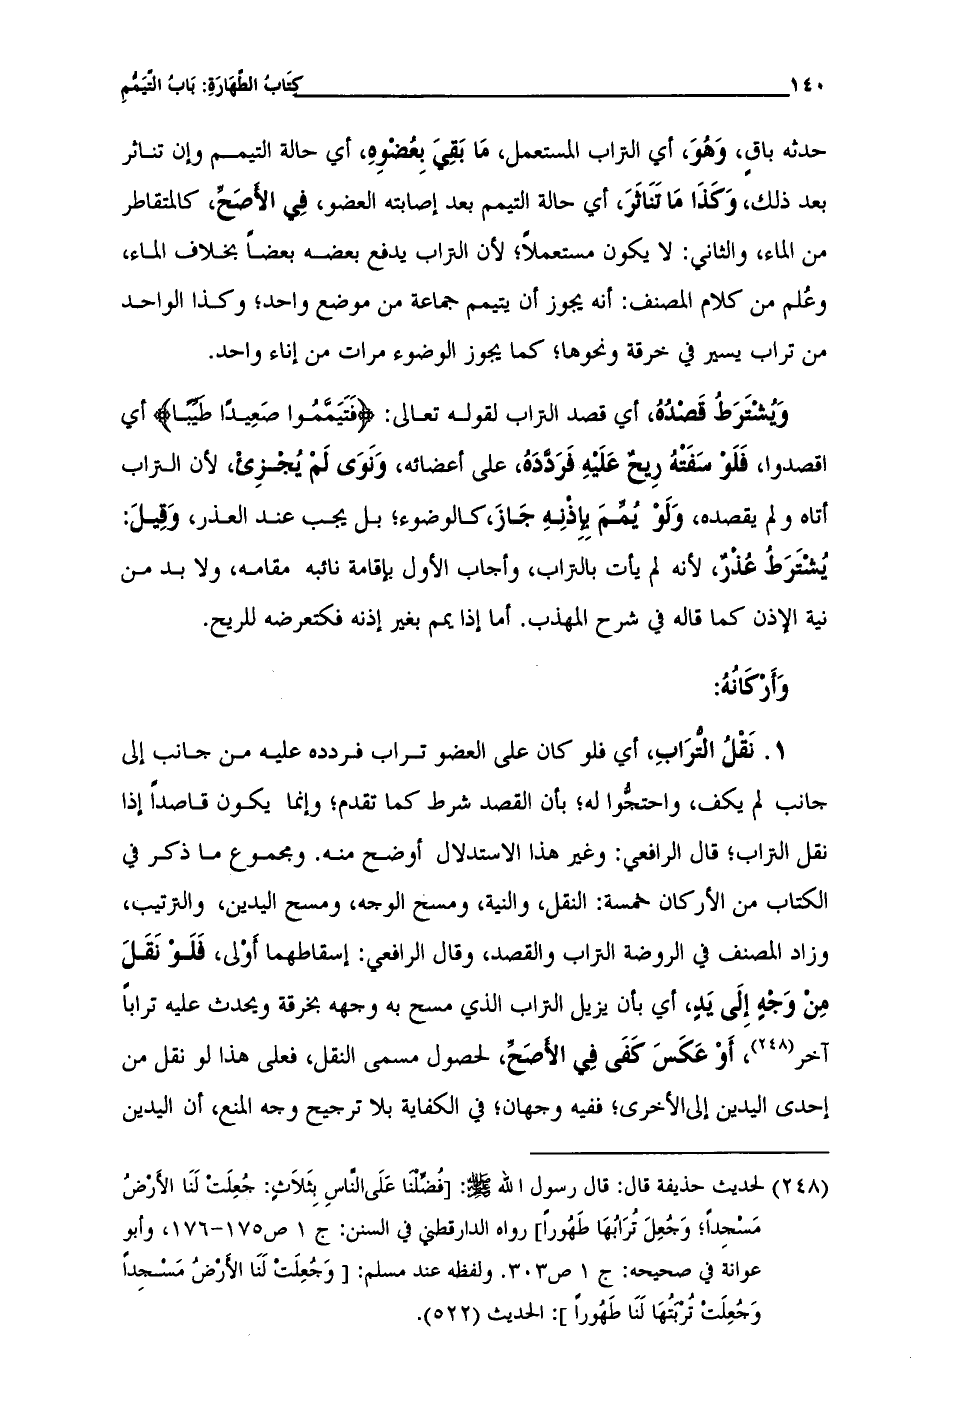 ١٤٠ كِتَابُ الطَّهَارَةِ: بَابُ التَّيَمُّمِ
حدثه باقٍ، وَهُوَ، أي التراب المستعمل، مَا بَقِيَ بِعُضْوِهِ، أي حالة التيمم وإن تناثر
بعد ذلك، وَكَذَا مَا تَنَاثَرَ، أي حالة التيمم بعد إصابته العضو، فِي الأَصَحِّ، كالمتقاطر
من الماء، والثاني: لا يكون مستعملاً؛ لأن التراب يدفع بعضه بعضاً بخلاف الماء،
وعُلم من كلام المصنف: أنه يجوز أن يتيمم جماعة من موضع واحد؛ وكذا الواحد
من تراب يسير في خرقة ونحوها؛ كما يجوز الوضوء مرات من إناء واحد.
وَيُشْتَرَطُ قَصْدُهُ، أي قصد التراب لقوله تعالى: ﴿فَتَيَمَّمُوا صَعِيدًا طَيِّبًا﴾ أي
اقصدوا، فَلَوْ سَفَتْهُ رِيحٌ عَلَيْهِ فَرَدَّدَهُ، على أعضائه، وَنَوَى لَمْ يُجْزِئْ، لأن التراب
أتاه ولم يقصده، وَلَوْ يُمِّمَ بِإِذْنِهِ جَازَ، كالوضوء؛ بل يجب عند العذر، وَقِيلَ:
يُشْتَرَطُ عُذْرٌ، لأنه لم يأت بالتراب، وأجاب الأول بإقامة نائبه مقامه، ولا بد من
نية الإذن كما قاله في شرح المهذب. أما إذا يمم بغير إذنه فكتعرضه للريح.
وَأَرْكَانُهُ:
١. نَقْلُ التُّرَابِ، أي فلو كان على العضو تراب فردده عليه من جانب إلى
جانب لم يكف، واحتجُّوا له؛ بأن القصد شرط كما تقدم؛ وإنما يكون قاصداً إذا
نقل التراب؛ قال الرافعي: وغير هذا الاستدلال أوضح منه. ومجموع ما ذكر في
الكتاب من الأركان خمسة: النقل، والنية، ومسح الوجه، ومسح اليدين، والترتيب،
وزاد المصنف في الروضة التراب والقصد، وقال الرافعي: إسقاطهما أَوْلى، فَلَوْ نَقَلَ
مِنْ وَجْهٍ إِلَى يَدٍ، أي بأن يزيل التراب الذي مسح به وجهه بخرقة ويحدث عليه تراباً
آخر(٢٤٨)، أَوْ عَكَسَ كَفَى فِي الأَصَحِّ، لحصول مسمى النقل، فعلى هذا لو نقل من
إحدى اليدين إلى الأخرى؛ ففيه وجهان؛ في الكفاية بلا ترجيح وجه المنع، أن اليدين
(٢٤٨) لحديث حذيفة قال: قال رسول الله ﷺ: [فُضِّلْنَا عَلَى النَّاسِ بِثَلاَثٍ: جُعِلَتْ لَنَا الأَرْضُ
مَسْجِداً؛ وَجُعِلَ تُرَابُهَا طَهُوراً] رواه الدارقطني في السنن: ج ١ ص١٧٥-١٧٦، وأبو
عوانة في صحيحه: ج ١ ص٣٠٣. ولفظه عند مسلم: [ وَجُعِلَتْ لَنَا الأَرْضُ مَسْجِداً
وَجُعِلَتْ تُرْبَتُهَا لَنَا طَهُوراً ]: الحديث (٥٢٢).